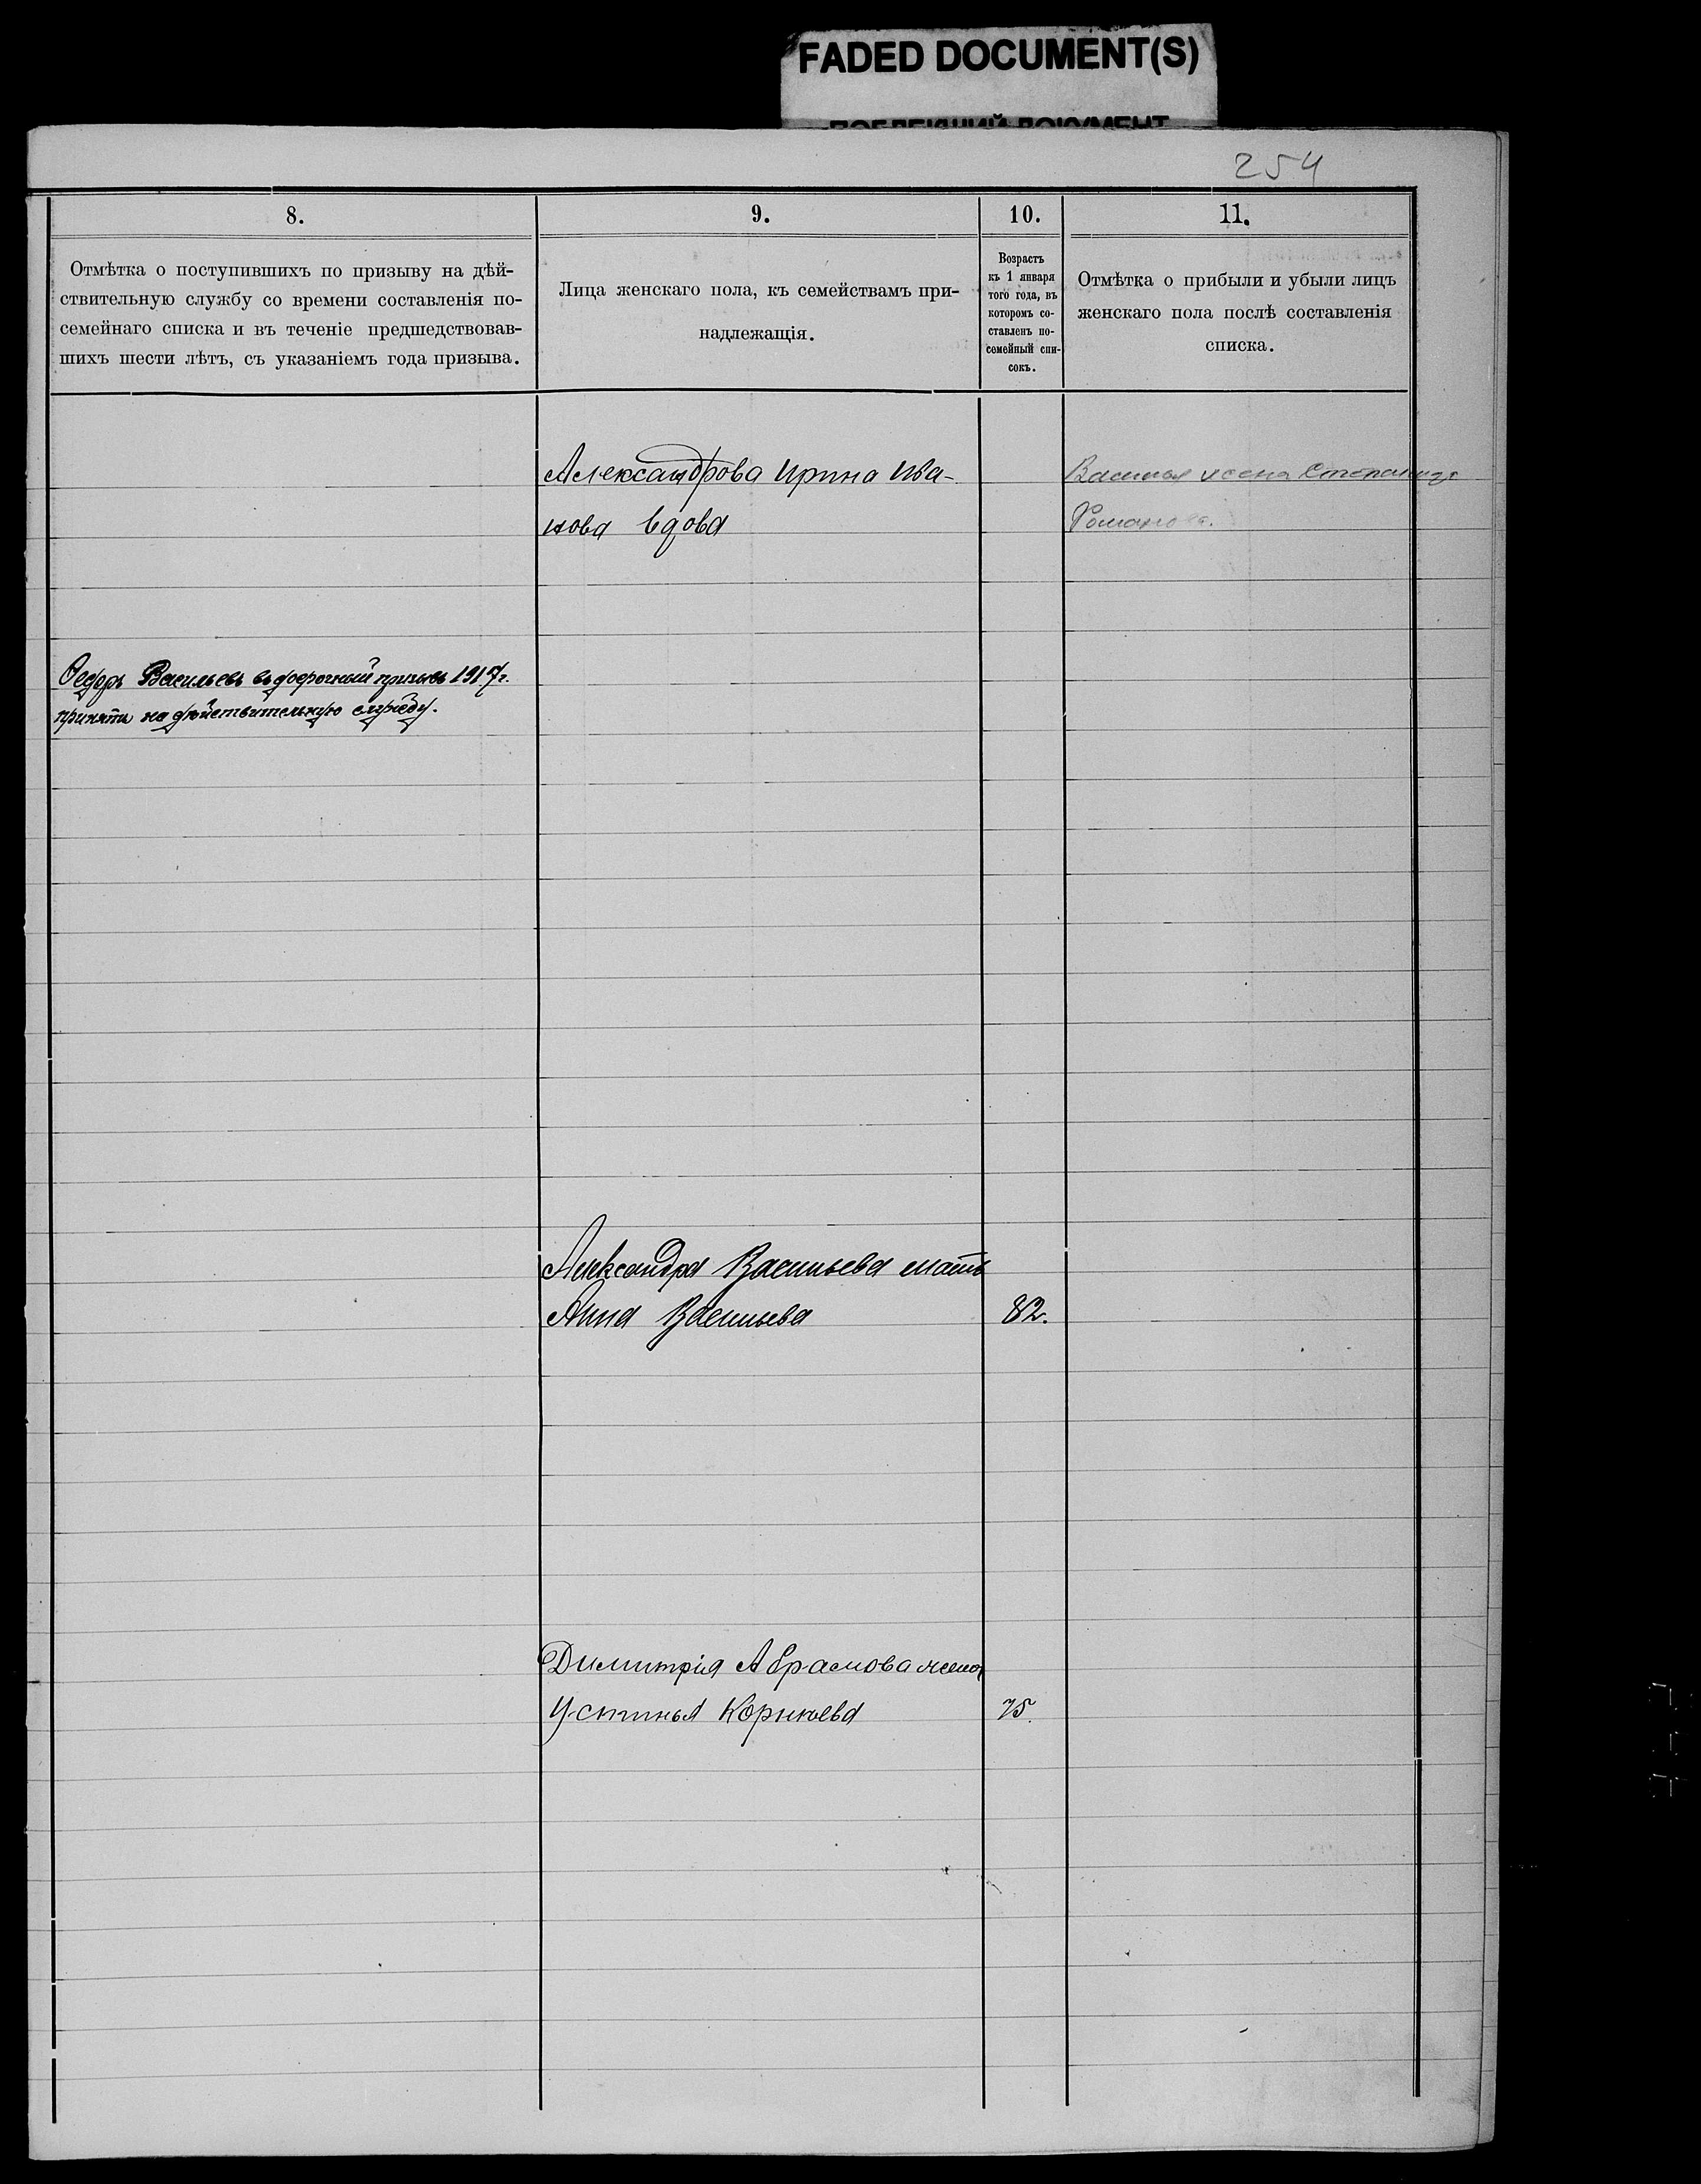 FADED DOCUMENT(S)
254
8.
Отмѣтка о поступившихъ по призыву на дѣй-
ствительную службу со времени составленія по-
семейнаго списка и въ теченіе предшедствовав-
шихъ шести лѣтъ, съ указаніемъ года призыва.
9.
Лица женскаго пола, къ семействамъ при-
надлежащія.
10.
Возрастъ
къ 1 января
того года, въ
которомъ со-
ставленъ по-
семейный спи-
сокъ.
11.
Отмѣтка о прибыли и убыли лицъ
женскаго пола послѣ составленія
списка.
Александрова Ирина Ива-
нова вдова
Василья жена
Романова.
Ѳедоръ Васильевъ въ досрочный призывъ 1917 г.
принятъ на дѣйствительную службу.
Александра Васильева мать
Анна Васильева 82.
Димитрія Абрамова жена
Устинья Корнеева 75.